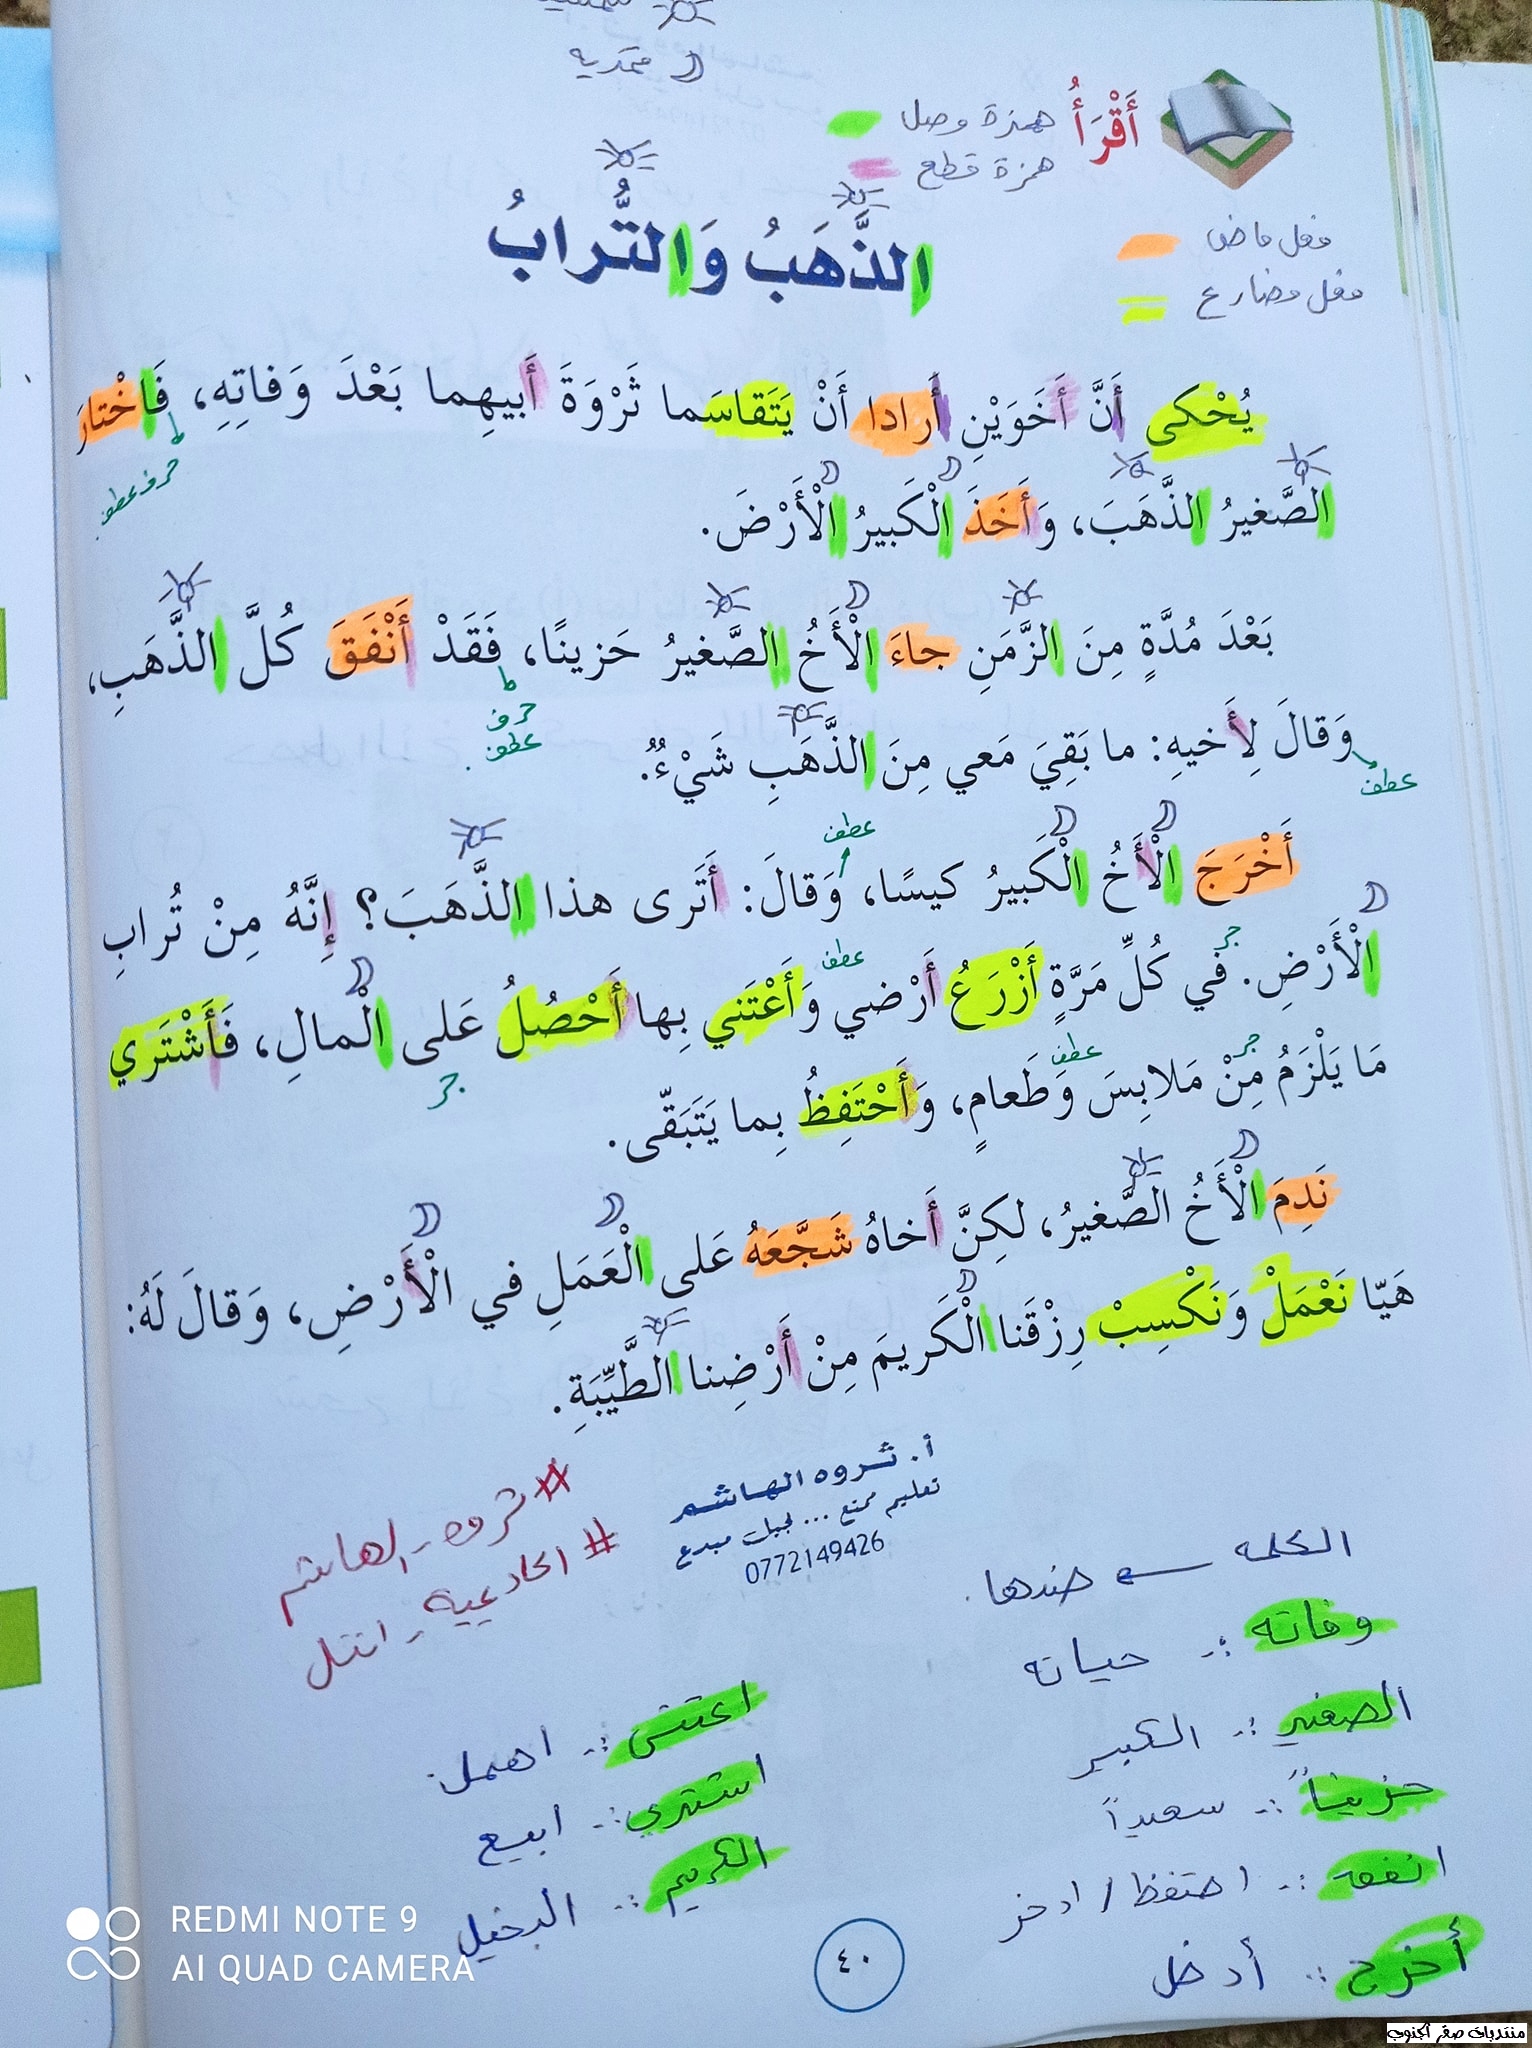 قمرية
أَقْرَأُ
همزة وصل
همزة قطع
فعل ماض
فعل مضارع
الذَّهَبُ وَالتُّرابُ
يُحْكى أَنَّ أَخَوَيْنِ أَرادا أَنْ يَتَقاسَما ثَرْوَةَ أَبيهِما بَعْدَ وَفاتِهِ، فَاخْتارَ
حرف عطف
الصَّغيرُ الذَّهَبَ، وَأَخَذَ الْكَبيرُ الْأَرْضَ.
بَعْدَ مُدَّةٍ مِنَ الزَّمَنِ جاءَ الْأَخُ الصَّغيرُ حَزينًا، فَقَدْ أَنْفَقَ كُلَّ الذَّهَبِ،
حرف
عطف
وَقالَ لِأَخيهِ: ما بَقِيَ مَعي مِنَ الذَّهَبِ شَيْءٌ.
عطف
عطف
أَخْرَجَ الْأَخُ الْكَبيرُ كيسًا، وَقالَ: أَتَرى هذا الذَّهَبَ؟ إِنَّهُ مِنْ تُرابِ
جر
عطف
الْأَرْضِ. في كُلِّ مَرَّةٍ أَزْرَعُ أَرْضي وَأَعْتَني بِها أَحْصُلُ عَلى الْمالِ، فَأَشْتَري
جر
عطف
جر
مَا يَلْزَمُ مِنْ مَلابِسَ وَطَعامٍ، وَأَحْتَفِظُ بِما يَتَبَقّى.
نَدِمَ الْأَخُ الصَّغيرُ، لكِنَّ أَخاهُ شَجَّعَهُ عَلى الْعَمَلِ في الْأَرْضِ، وَقالَ لَهُ:
هَيّا نَعْمَلْ وَنَكْسِبْ رِزْقَنا الْكَريمَ مِنْ أَرْضِنا الطَّيِّبَةِ.
أ. ثروه الهاشم
تعليم ممتع ... لجيل مبدع
0772149426
#ثروه_الهاشم
#اكاديمية_انتل
الكلمه ضدها.
وفاته :- حياته
الصغير :- الكبير
حزيناً :- سعيداً
انفق :- احتفظ / ادخر
أخرج :- أدخل
اعتني :- اهمل.
اشتري :- ابيع
الكريم :- البخيل
٤٠
REDMI NOTE 9
AI QUAD CAMERA
منتديات صقر الجنوب